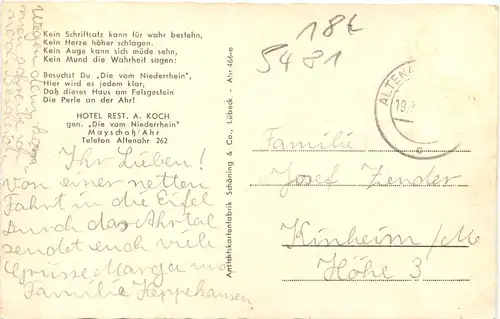 Kein Schriftsatz kann für wahr bestehn,
Kein Herze höher schlagen.
Kein Auge kann sich müde sehn,
Kein Mund die Wahrheit sagen:
Besuchst Du „Die vom Niederrhein",
Hier wird es jedem klar,
Daß dieses Haus am Felsgestein
Die Perle an der Ahr!
HOTEL REST. A. KOCH
gen. „Die vom Niederrhein"
Mayschoß/Ahr
Telefon Altenahr 262
Ihr Lieben!
Von einer netten
Fahrt in die Eifel
Durch das Ahrtal
sendet euch viele
Grüsse Marga und
Familie Heppehausen.
wegen
Antiaktskartenfabrik Schöning & Co., Lübeck - Ahr 466-e
18 €
5481
ALTENA
19.
Familie
Josef Zender
Kinheim/M
Höhe 3